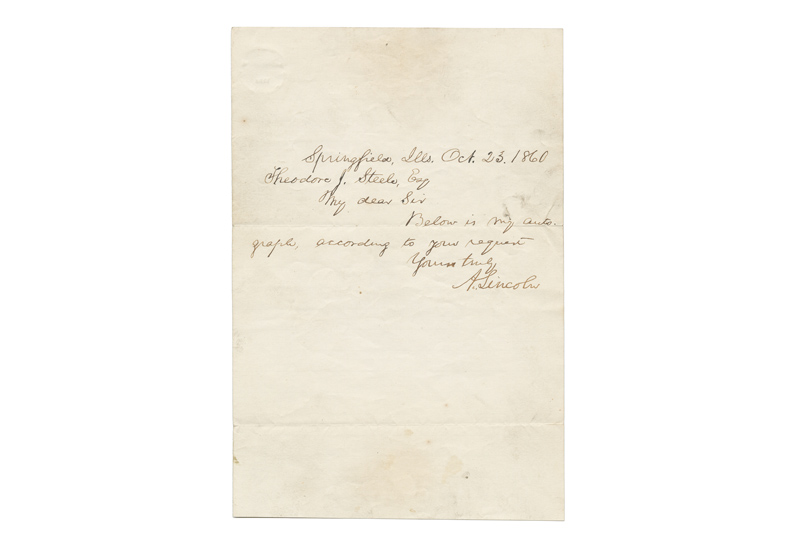 Springfield, Ills. Oct. 23. 1860
Theodore J. Steele, Esq
My dear Sir
Below is my auto-
graph, according to your request
Yours truly
A. Lincoln